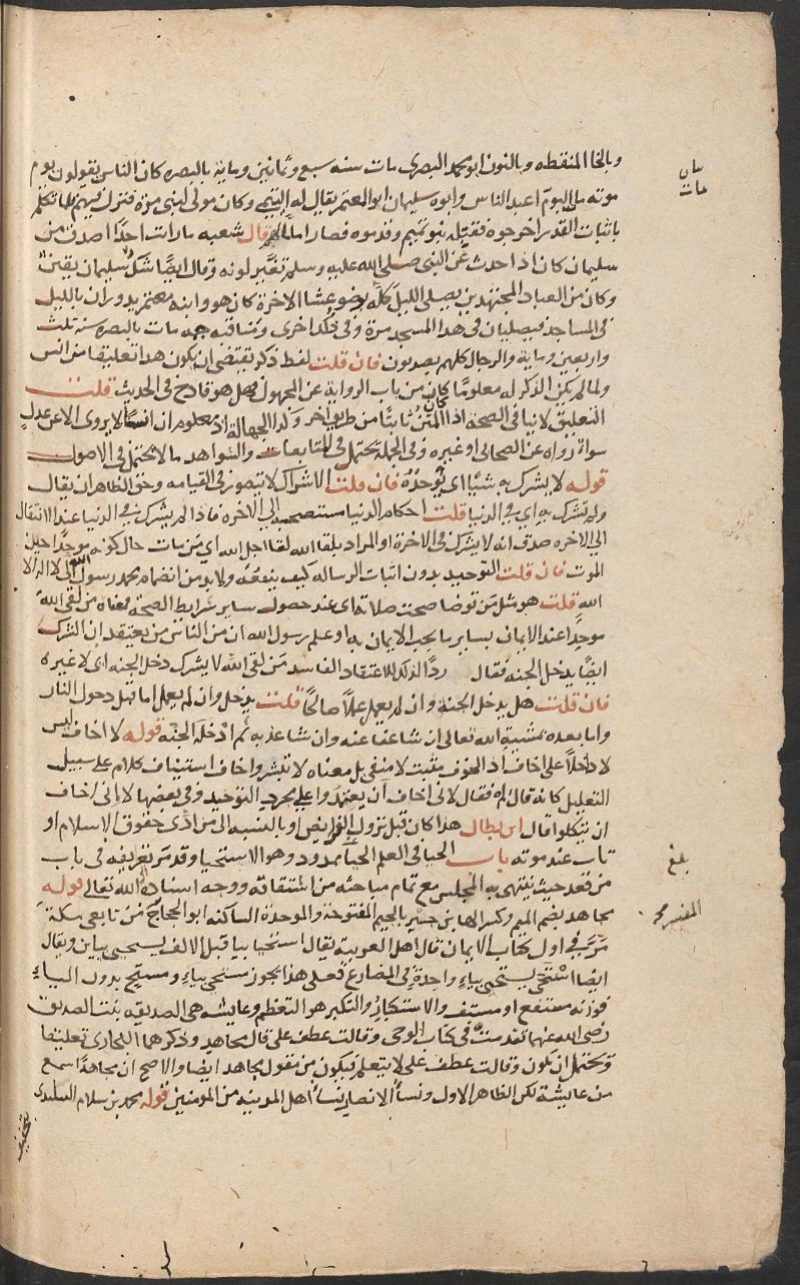 وبالخا المنقطه وبالنون ابو محمد البصرى مات سنه سبع وثمانين وماية بالبصره كان الناس يقولون يوم
موته مات اليوم اعبد الناس وابوه سليمان ابو المعتمر يقال له التيمى وكان مولى لبنى مرة فنزل فيهم فلما تكلم
باثبات القدر اخرجوه فقبله بنو تميم وقدموه فصار امامالهم قال شعبه مارات احدًا اصدق من
سليمان كان اذا حدث عن النبى صلى الله عليه وسلم تغير لونه وقال ايضًا شك سليمان يقين
وكان من العباد المجتهدين يصلى الليل كله بوضو عشا الاخرة كان هو وابنه معتمر يدوران بالليل
فى المساجد فيصليان فى هدا المسجد مرة وفى ذلك اخرى ومناقبه جمه مات بالبصره سنه ثلث
واربعين وماية والرجال كلهم بصريون فان قلت لفظ ذكر يقتضى ان يكون هدا تعليقا من انس
ولما لم يكن الذاكر له معلومًا كان من باب الرواية عن المجهول فهل هو قادح فى الحديث قلت
التعليق لا ينافى الصحة اذا كان المتن ثابتًا من طريق اخر وكدا الجهالة اذ معلوم ان انسًا لا يروى الا عن عدل
سواة رواه عن الصحابى او غيره وفى الجملة يحتمل فى المتابعات والشواهد ما لا يحتمل فى الاصول
قوله لا يشرك به شيئًا اى يوحده فان قلت الاشراك لا يتصور فى القيامه وحق الظاهر ان يقال
ولم يشرك به اى فى الدنيا قلت احكام الدنيا مستصحبه الى الاخره فاذا لم يشرك فى الدنيا عند الانتقال
الى الاخره صدق انه لا يشرك فى الاخرة او المراد بلقا الله لقا اجل الله اى من مات حال كونه موحدًا حين
الموت فان قلت التوحيد بدون اثبات الرساله كيف ينفعه ولا بد من انضمام محمد رسول الله الى لا اله الا
الله قلت هو مثل من توضا صحت صلاته اى عند حصول ساير شرايط الصحة فمعناه من لقى الله
موحدًا عند الايمان بساير ما يجب الايمان به او علم رسول الله ان من الناس من يعتقد ان المشرك
ايضًا يدخل الجنه فقال ردًا لذلك الاعتقاد الفاسد من لقى الله لا يشرك دخل الجنه اى لا غيره
فان قلت هل يدخل الجنة وان لم يعمل عملاً صالحًا قلت يدخل وان لم يعمل اما قبل دخول النار
واما بعده بمشية الله تعالى ان شا عفا عنه وان شا عذبه ثم ادخله الجنه قوله لا اخاف ليس
لا داخلاً على اخاف اذ الخوف مثبت لا منفى بل معناه لا تبشر واخاف استيناف كلام على سبيل
التعليل كانه قال لم فقال لانى اخاف ان يعتمدوا على مجرد التوحيد وفى بعضها لا انى اخاف
ان يتكلوا قال ابن بطال هدا كان قبل نزول الفرايض او بالنسبه الى من ادى حقوق الاسلام او
تاب عند موته باب الحيا فى العلم الحيا ممدود وهو الاستحيا وقد مر تعريفه فى باب
من قعد حيث ينتهى به المجلس مع تمام مباحثه من اشتقاقه ووجه اسناده الى الله تعالى قوله
مجاهد بضم الميم وكسر الها بن جبر بالجيم المفتوحة والموحدة الساكنه ابو الحجاج من تابعى مكة
مر فى اول كتاب الايمان قال اهل العربيه يقال استحيا بيا قبل الالف يستحيى بياين ويقال
ايضا استحى يستحى بياءٍ واحدةٍ فى المضارع فعلى هذا يجوز مستحى بياءٍ ومستحٍ بدون الياء
فوزنه مستفع او مستف والاستكبار والتكبر هو التعظم وعايشه هى الصديقه بنت الصديق
رضى الله عنهما تقدمت فى كتاب الوحى وقالت عطف على قال مجاهد وذكرهما البخارى تعليقا
ويحتمل ان يكون وقالت عطف على لا يتعلم فيكون من مقول مجاهد ايضا والاصح ان مجاهدًا سمع
من عايشة لكن الظاهر الاول ونسأ الانصار نسأ اهل المدينه من المومنين قوله محمد بن سلام البيكندى
مات
بلغ